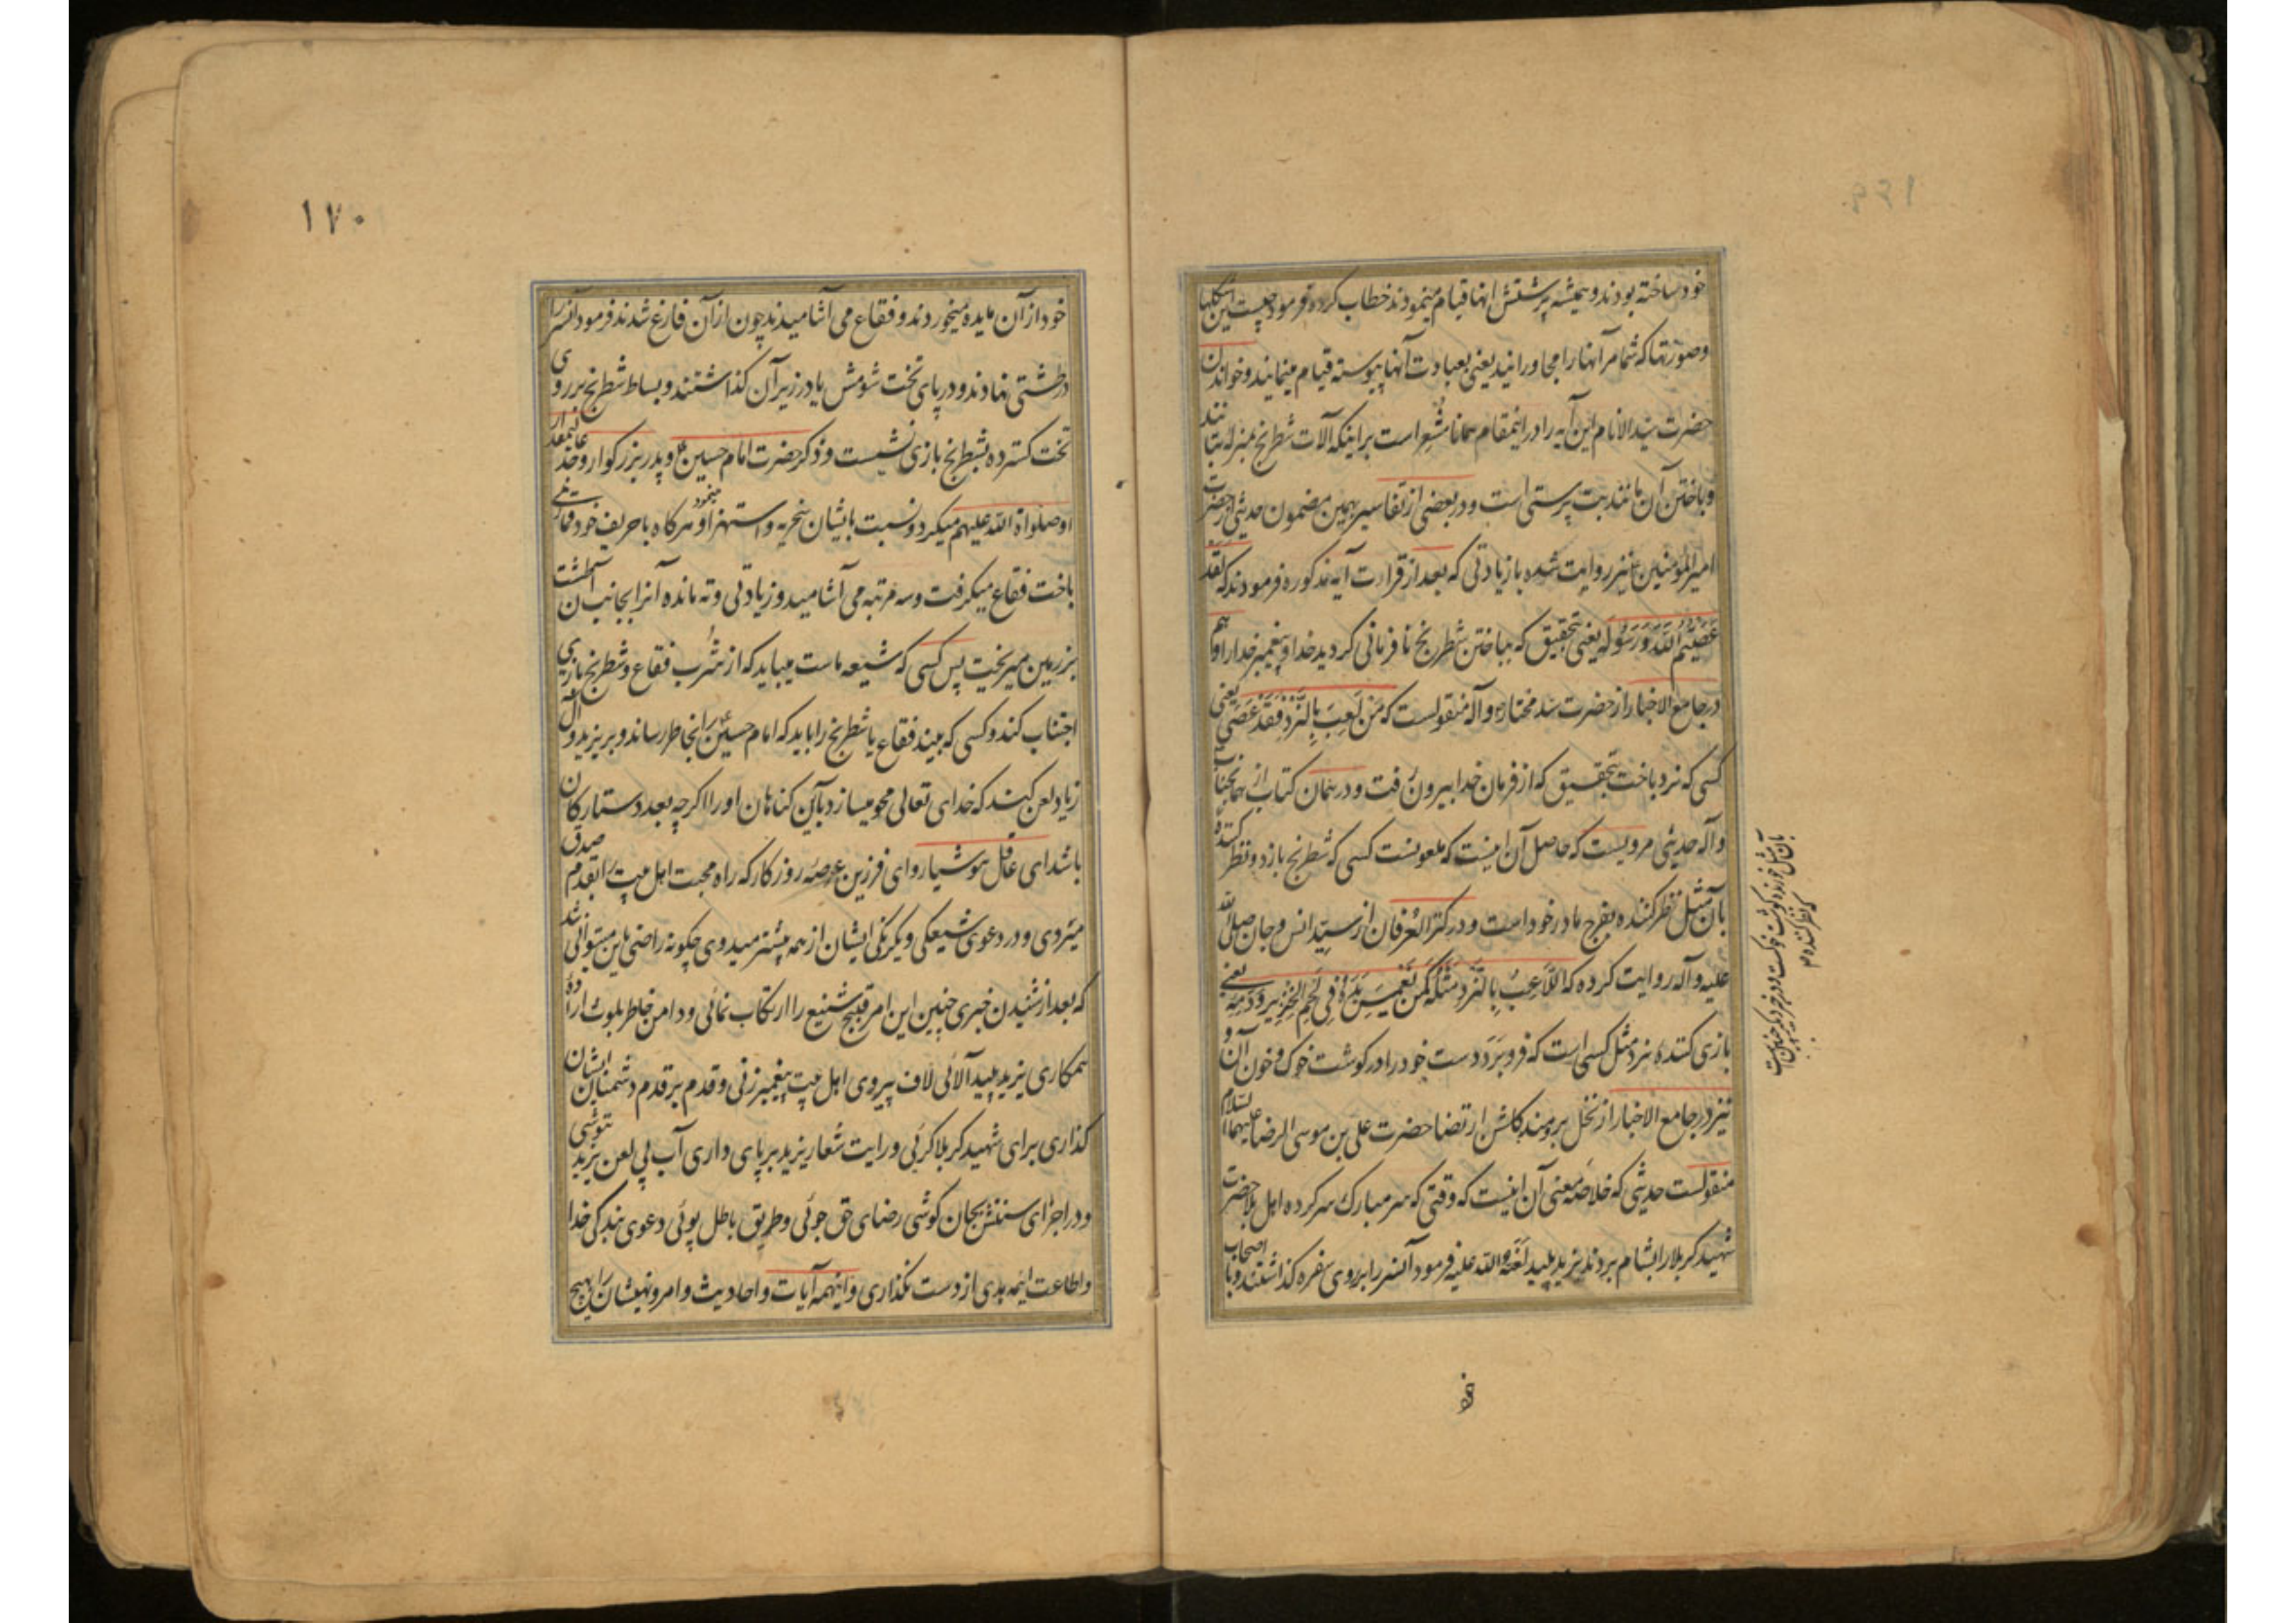 خود ساخته بودند و همیشه پرستش انها قیام مینمودند خطاب کرده فرمود چیست این شکلها
وصورتها که شما مر آنها را مجاورانید یعنی بعبادت آنها پیوسته قیام مینمایند و خواندن
حضرت سید الانام این آیه را در اینمقام همانا مُشعِر است بر اینکه آلات شطرنج بمنزله بتانند
و باختن آن مانند بت پرستی است و در بعضی از تفاسیر همین مضمون حدیثی از حضرت
امیر المؤمنین نیز روایت شده با زیادتی که بعد از قراءت آیه مذکوره فرمودند که لَقَد
عَصَیتُم اللّٰهَ وَرَسُولَه یعنی بتحقیق که بباختن شطرنج نافرمانی کردید خدا و پیغمبر خدا را و هم
در جامع الاخبار از حضرت سید مختار و آله منقولست که مَن لَعِبَ بِالنَّردِ فَقَد عَصَی یعنی
کسی که نرد باخت بتحقیق که از فرمان خدا بیرون رفت و در همان کتاب از همانجناب
و آله حدیثی مرویست که حاصل آن اینست که ملعونست کسی که شطرنج بازد و نظر کننده
بان مثل نظر کننده بفرج مادر خود است و در کنز العرفان از سیّد انس و جان صلی الله
علیه و آله روایت کرده که اللّاعِبُ بِالنَّردِ مَثَلُه کَمَن یَغمِسُ یَدَهُ فِی لَحمِ الخِنزِیرِ وَدَمِه یعنی
بازی کننده نرد مثل کسی است که فرو بَرَد دست خود را در کوشت خوک و خون آن و
نیز در جامع الاخبار از نخل برومند کلشن ارتضا حضرت علی بن موسی الرضا علیهما السلام
منقولست حدیثی که خلاصه معنی آن اینست که وقتی که سر مبارک سرکرده اهل بلا حضرت
شهید کربلا را بشام بردند یزید پلید لعنة الله علیه فرمود آنسر را بر روی سفره کذاشتند و با اصحاب
خود
۱۷۰
خود از آن مایده میخوردند و فقاع می آشامیدند چون از آن فارغ شدند فرمود آنسر را
در طشتی نهادند و در پای تخت شومش یا در زیر آن کذاشتند و بساط شطرنج بر روی
تخت کسترده بشطرنج بازی نشست و ذکر حضرت امام حسین و پدر بزرکوار و جد عالیمقدار
او صلواة الله علیهم میکرد و نسبت بایشان سخریه و استهزا مینمود و هرکاه با حریف خود
باخت فقاع میکرفت و سه مرتبه می آشامید و زیادتی و ته مانده آنرا بجانب آن طشت
بر زمین میریخت پس کسی که شیعه ماست میباید که از شُرب فقاع و شطرنج بازی
اجتناب کند و کسی که بیند فقاع یا شطرنج را باید که امام حسین را بخاطر رساند و بر یزید و آل
زیاد لعن کند که خدای تعالی محو میسازد باین کناهان او را اکرچه بعدد ستارکان
باشد ای عاقل هوشیار و ای فرزین عرصه روزکار که راه محبت اهل بیت را بقدم صدق
میروی و در دعوی شیعکی و یکرنکی ایشان از همه بیشتر میدوی چکونه راضی باین میتوانی شد
که بعد از شنیدن خبری چنین این امر قبیح شنیع را ارتکاب نمائی و دامن خاطر بلوث اراده
همکاری یزید پلید آلائی لاف پیروی اهل بیت پیغمبر زنی و قدم بر قدم دشمنان ایشان
کذاری برای شهید کربلا کرئی و رایت شعار یزید بر پای داری آب بی لعن یزید ننوشی
و در اجرای سنتش بجان کوشی رضای حق جوئی و طریق باطل پوئی دعوی بندکی خدا
و اطاعت ائمه هدی از دست نکذاری و اینهمه آیات و احادیث و امر و نهیشان را بهیچ